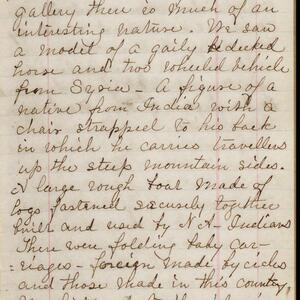 gallery there is much of an
interesting nature. We saw
a model of a gaily bedecked
horse and two wheeled vehicle
from Syria - A figure of a
native from India with a
chair strapped to his back
in which he carries travellers
up the steep mountain sides.
A large rough boat made of
logs fastened securely together
built and used by N.A. Indians
There were folding baby car-
-riages - foreign made by
and those made in this country,